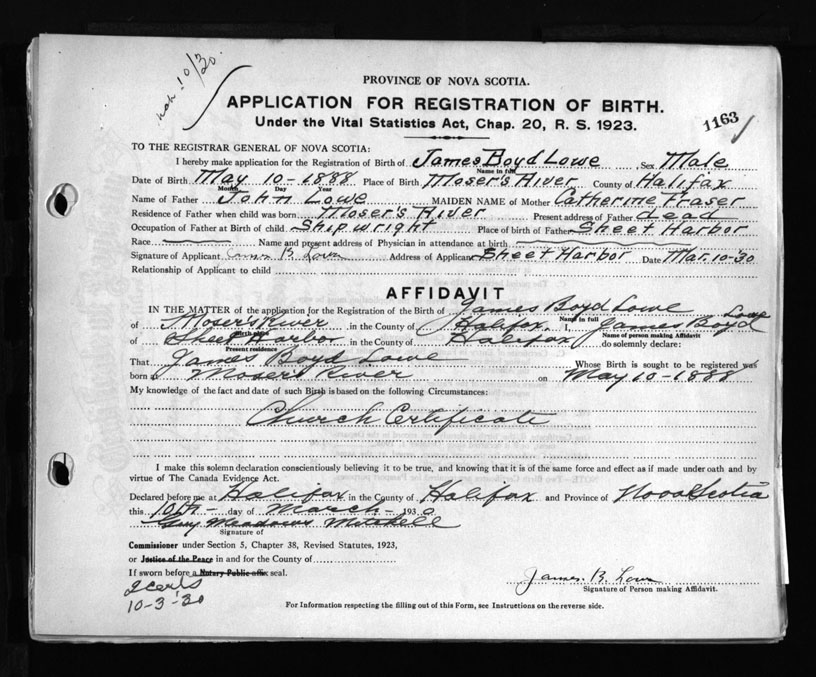 Mch 10/30.
PROVINCE OF NOVA SCOTIA.
APPLICATION FOR REGISTRATION OF BIRTH.
Under the Vital Statistics Act, Chap. 20, R. S. 1923.
1163
TO THE REGISTRAR GENERAL OF NOVA SCOTIA:
I hereby make application for the Registration of Birth of James Boyd Lowe Sex Male
Name in full
Date of Birth May 10-1888 Place of Birth Moser's River County of Halifax
Month Day Year
Name of Father John Lowe MAIDEN NAME of Mother Catherine Fraser
Residence of Father when child was born Moser's River Present address of Father dead
Occupation of Father at Birth of child Shipwright Place of birth of Father Sheet Harbor
Race Name and present address of Physician in attendance at birth
Signature of Applicant James B. Lowe Address of Applicant Sheet Harbor Date Mar. 10-'30
Relationship of Applicant to child
AFFIDAVIT
IN THE MATTER of the application for the Registration of the Birth of James Boyd Lowe
Name in full
of Moser's River in the County of Halifax. I, James Boyd Lowe
Birth place Name of person making Affidavit
of Sheet Harbor in the County of Halifax do solemnly declare:
Present residence
That James Boyd Lowe Whose Birth is sought to be registered was
born at Mosers River on May 10-1888
My knowledge of the fact and date of such Birth is based on the following Circumstances:
Church Certificate
I make this solemn declaration conscientiously believing it to be true, and knowing that it is of the same force and effect as if made under oath and by
virtue of The Canada Evidence Act.
Declared before me at Halifax in the County of Halifax and Province of Nova Scotia
this 10th day of March 1930
Guy Meadows Mitchell
Signature of
Commissioner under Section 5, Chapter 38, Revised Statutes, 1923,
or Justice of the Peace in and for the County of
If sworn before a Notary Public affix seal.
2 certs
10-3-'30
James B. Lowe
Signature of Person making Affidavit.
For Information respecting the filling out of this Form, see Instructions on the reverse side.